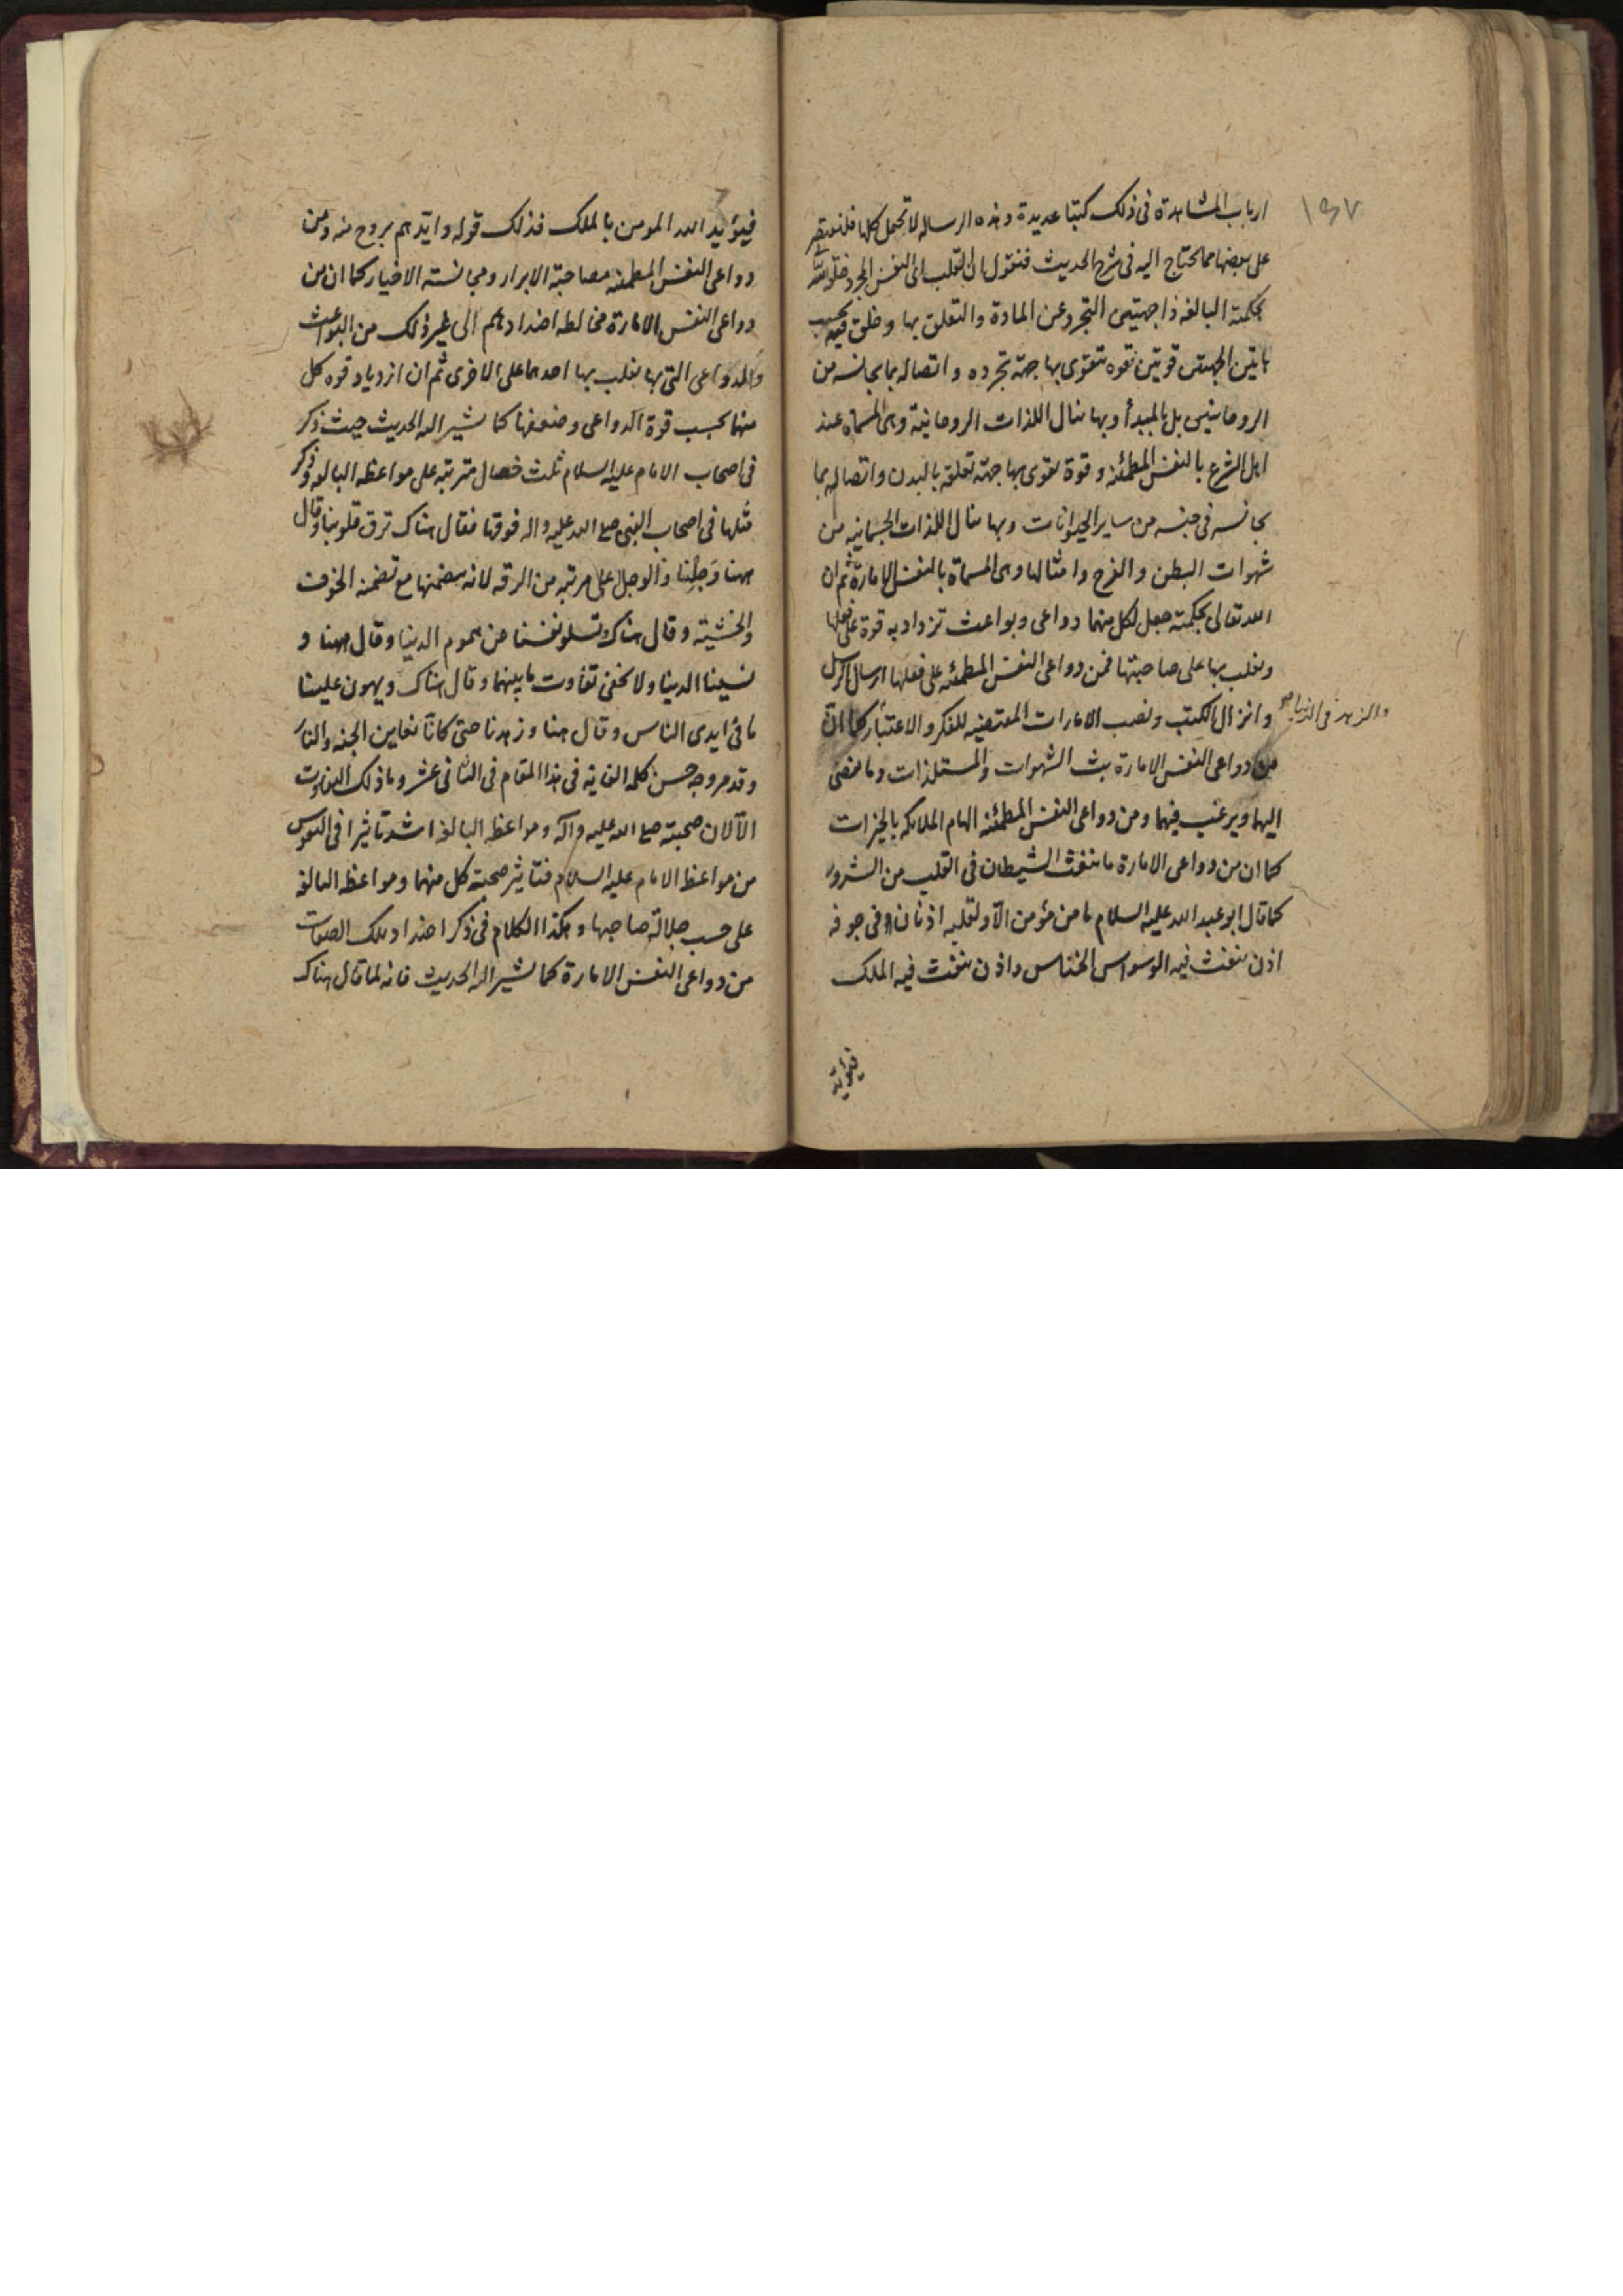 ١٩٧
ارباب المشاهدة فى ذلك كتبا عديدة وهذه الرساله لا تحمل كلها فلنقتصر
على بعضها مما يحتاج اليه فى شرح الحديث فنقول ان القلب اى النفس المجرد خلقه الله
بحكمته البالغه ذا جهتين التجرد عن المادة والتعلق بها وخلق فيه بحسب
هاتين الجهتين قوتين قوه تتقوى بها جهة تجرده واتصاله بما يجانسه من
الروحانيين بل بالمبدأ وبها ينال اللذات الروحانية وهى المسماه عند
اهل الشرع بالنفس المطمئنه وقوة يقوى بها جهة تعلقه بالبدن واتصاله بما
يجانسه فى جنسه من ساير الحيوانات وبها ينال اللذات الجسمانيه من
شهوات البطن والفرج وامثالها وهى المسماة بالنفس الامارة ثم ان
الله تعالى بحكمته جعل لكل منهما دواعى وبواعث تزداد به قوة على فعلها
ويغلب بها على صاحبتها فمن دواعى النفس المطمئنه على فعلها ارسال الرسل
وانزال الكتب ونصب الامارات المقتضيه للفكر والاعتبار كما ان
والزهد فى الدنيا صح
من دواعى النفس الامارة بث الشهوات والمستلذات وما يفضى
اليها ويرغب فيهما ومن دواعى النفس المطمئنه الهام الملائكه بالخيرات
كما ان من دواعى الامارة ما ينفث الشيطان فى القلب من الشرور
كما قال ابو عبد الله عليه السلام ما من مؤمن الا ولقلبه اذنان فى جوفه
اذن ينفث فيه الوسواس الخناس واذن ينفث فيه الملك
فيؤيد
فيؤيد الله المومن بالملك فذلك قوله وايدهم بروح منه ومن
دواعى النفس المطمئنه مصاحبة الابرار ومجانسته الاخيار كما ان من
دواعى النفس الامارة مخالطه اضدادهم الى غير ذلك من البواعث
والدواعى التى بها يغلب بها احدهما على الاخرى ثم ان ازدياد قوه كل
منهما بحسب قوة الدواعى وضعفها كما يشير اليه الحديث حيث ذكر
فى اصحاب الامام عليه السلام ثلث خصال مترتبه على مواعظه البالغه وذكر
مثلها فى اصحاب النبى صلع الله عليه واله فوقها فقال هناك ترق قلوبنا وقال
ههنا وَجِلْنا والوجل على مرتبه من الرقه لانه يتضمنها مع تضمنه الخوف
والخشية وقال هناك تسلو نفسنا عن هموم الدنيا وقال ههنا و
نسينا الدنيا ولا يخفى تفاوت ما بينهما وقال هناك ويهون علينا
ما فى ايدى الناس وقال هنا وزهدنا حتى كانا نعاين الجنه والنار
وقد مر وجه حسن كلمه الغايه فى هذا المقام فى الثانى عشر وما ذلك التفاوت
الا لان صحبته صلع الله عليه وآله ومواعظه البالغه اشد تاثيرا فى النفوس
من مواعظ الامام عليه السلام فتاثير صحبته كل منهما ومواعظه البالغه
على حسب جلالة صاحبها وهكذا الكلام فى ذكر اضداد تلك الصفات
من دواعى النفس الامارة كما يشير اليه الحديث فانه لما قال هناك